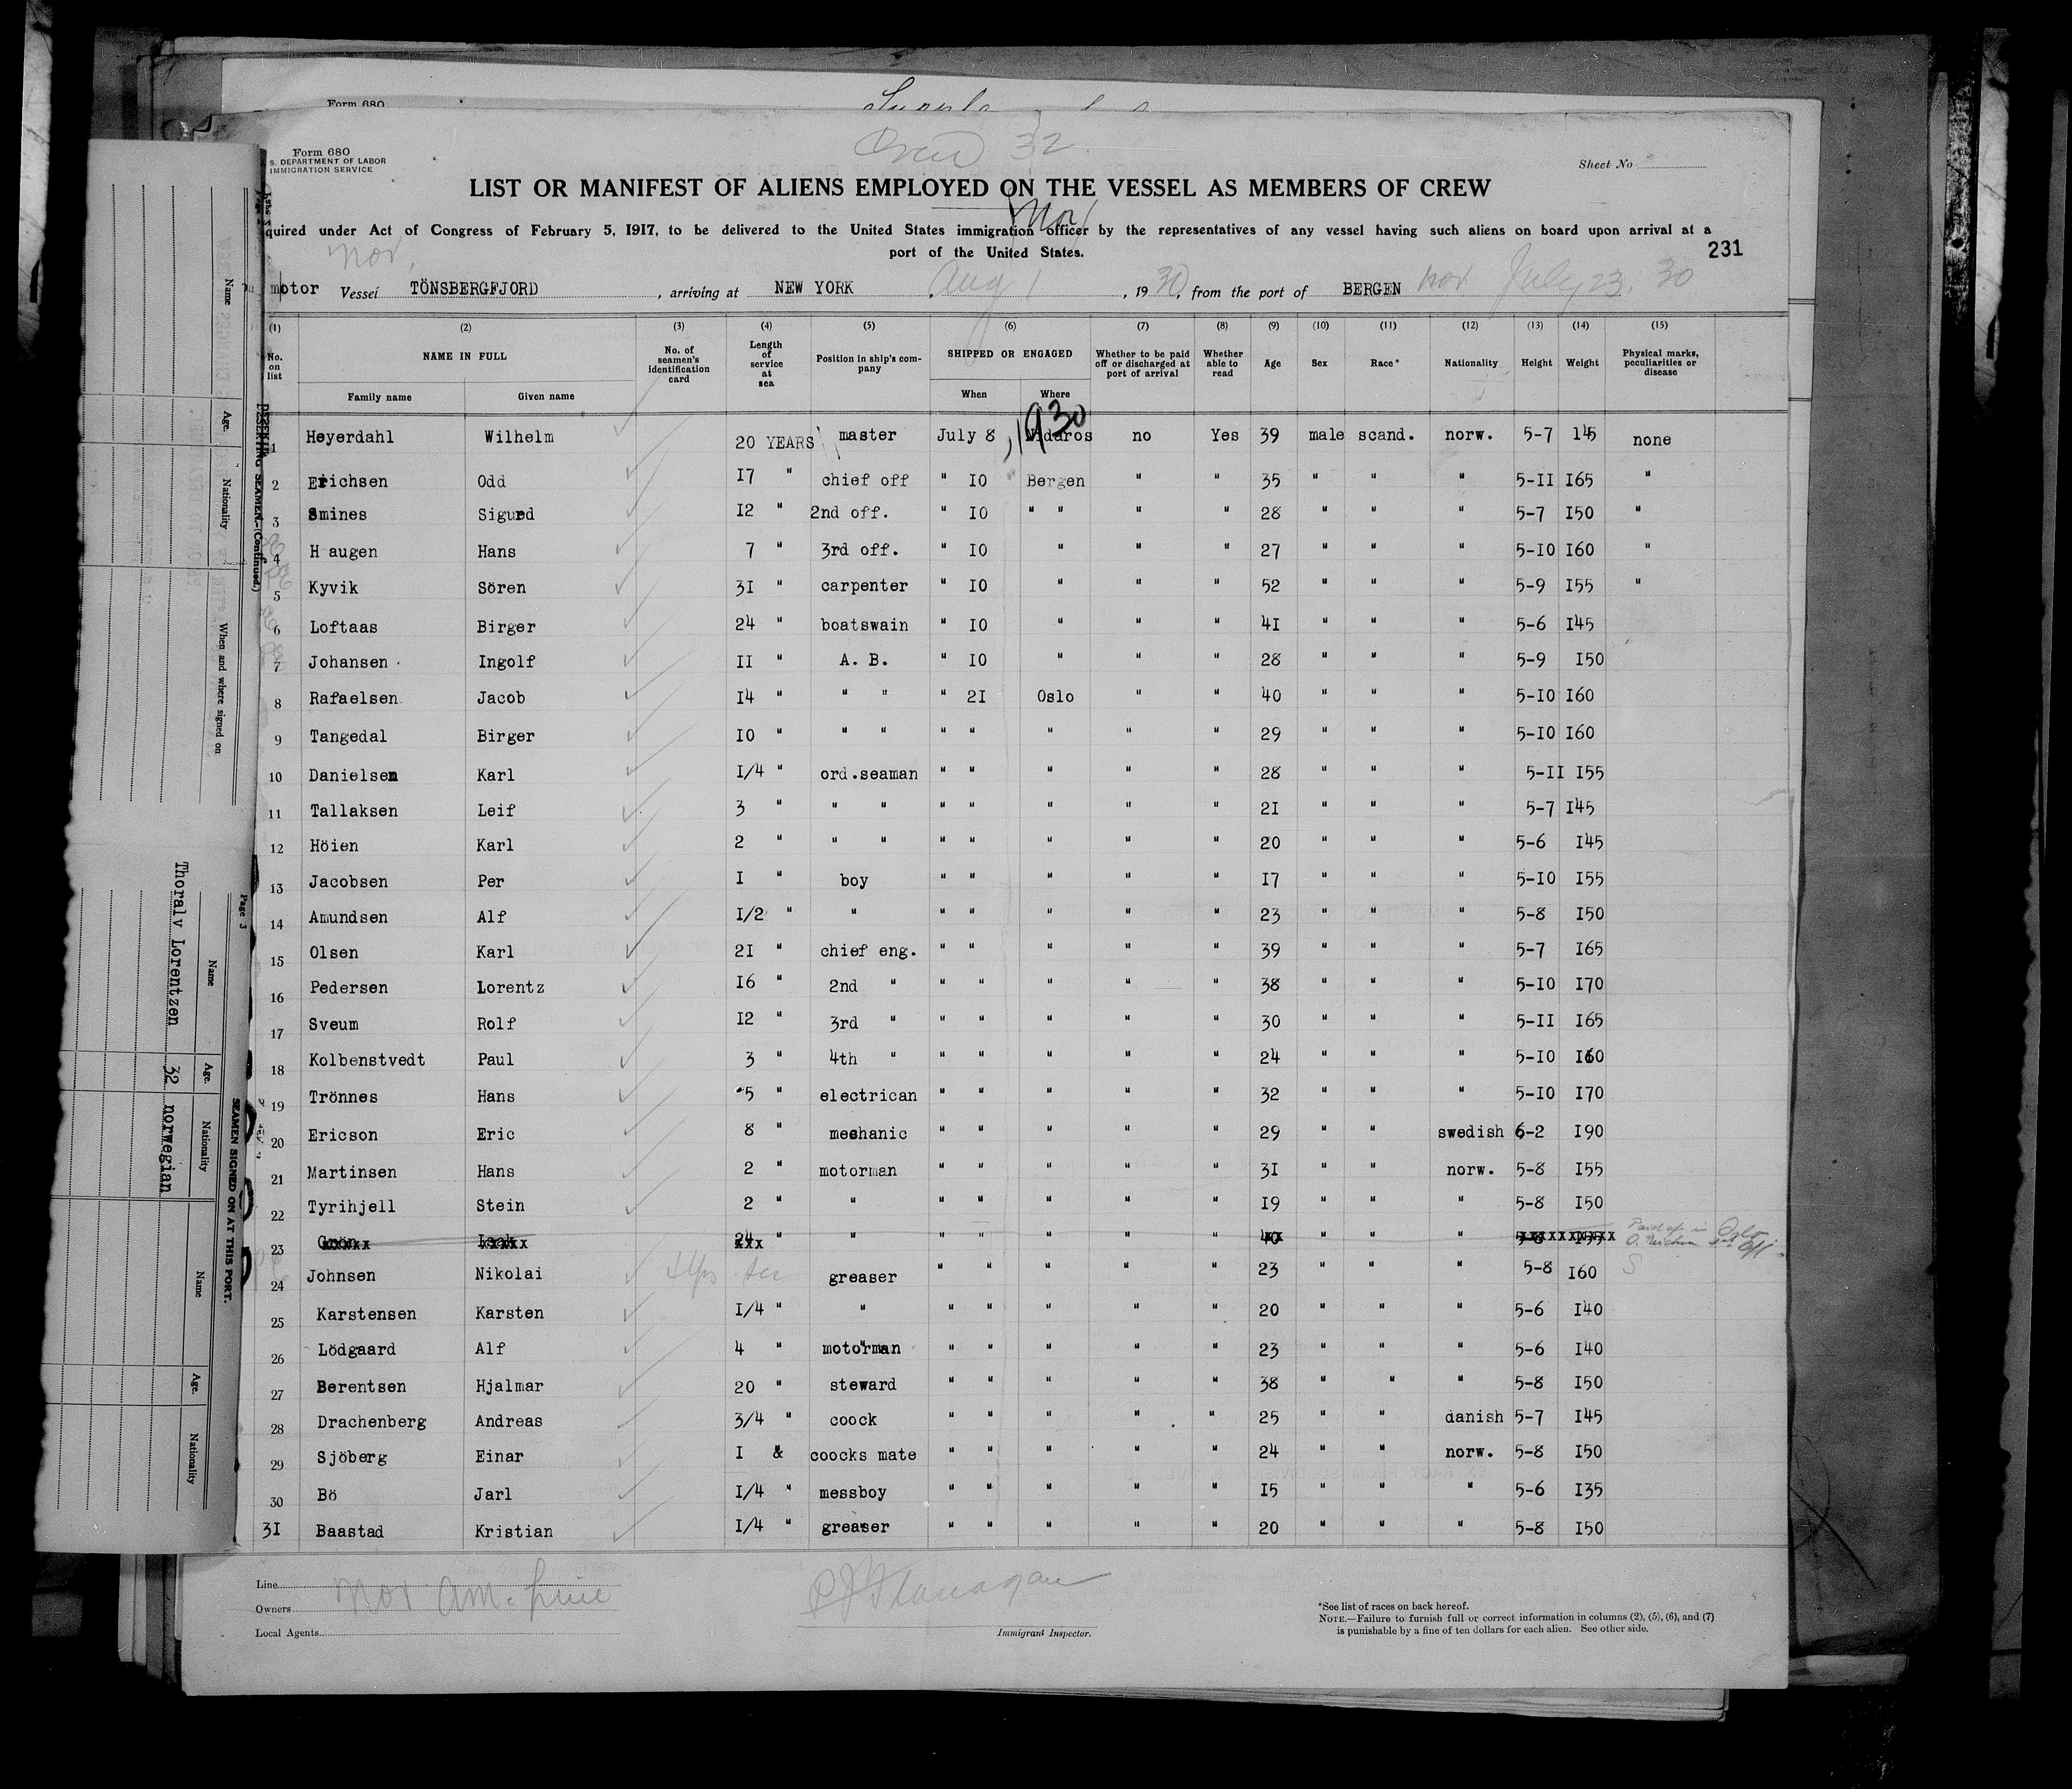 Form 680
Crew 32
Form 680
S. DEPARTMENT OF LABOR
IMMIGRATION SERVICE
Sheet No
LIST OR MANIFEST OF ALIENS EMPLOYED ON THE VESSEL AS MEMBERS OF CREW
Nor
quired under Act of Congress of February 5, 1917, to be delivered to the United States immigration officer by the representatives of any vessel having such aliens on board upon arrival at a
port of the United States.
231
Nor.
motor Vessel TÖNSBERGFJORD , arriving at NEW YORK , Aug 1 , 1930, from the port of BERGEN Nor July 23, 30
(1) (2) (3) (4) (5) (6) (7) (8) (9) (10) (11) (12) (13) (14) (15)
No. on list NAME IN FULL No. of seamen's identification card Length of service at sea Position in ship's company SHIPPED OR ENGAGED Whether to be paid off or discharged at port of arrival Whether able to read Age Sex Race* Nationality Height Weight Physical marks, peculiarities or disease
Family name Given name When Where
1930
1 Heyerdahl Wilhelm 20 YEARS master July 8 Nidaros no Yes 39 male scand. norw. 5-7 145 none
2 Erichsen Odd 17 " chief off " 10 Bergen " " 35 " " " 5-11 165 "
3 Smines Sigurd 12 " 2nd off. " 10 " " " " 28 " " " 5-7 150 "
4 H augen Hans 7 " 3rd off. " 10 " " " 27 " " " 5-10 160 "
5 Kyvik Sören 31 " carpenter " 10 " " " 52 " " " 5-9 155 "
6 Loftaas Birger 24 " boatswain " 10 " " " 41 " " " 5-6 145
7 Johansen Ingolf 11 " A. B. " 10 " " " 28 " " " 5-9 150
8 Rafaelsen Jacob 14 " " " " 21 Oslo " " 40 " " " 5-10 160
9 Tangedal Birger 10 " " " " " " " " 29 " " " 5-10 160
10 Danielsen Karl 1/4 " ord.seaman " " " " " 28 " " " 5-11 155
11 Tallaksen Leif 3 " " " " " " " " 21 " " " 5-7 145
12 Höien Karl 2 " " " " " " " " 20 " " " 5-6 145
13 Jacobsen Per 1 " boy " " " " " 17 " " " 5-10 155
14 Amundsen Alf 1/2 " " " " " " " 23 " " " 5-8 150
15 Olsen Karl 21 " chief eng. " " " " " 39 " " " 5-7 165
16 Pedersen Lorentz 16 " 2nd " " " " " " 38 " " " 5-10 170
17 Sveum Rolf 12 " 3rd " " " " " " 30 " " " 5-11 165
18 Kolbenstvedt Paul 3 " 4th " " " " " " 24 " " " 5-10 160
19 Trönnes Hans 5 " electrican " " " " " 32 " " " 5-10 170
20 Ericson Eric 8 " meshanic " " " " " 29 " " swedish 6-2 190
21 Martinsen Hans 2 " motorman " " " " " 31 " " norw. 5-8 155
22 Tyrihjell Stein 2 " " " " " " " 19 " " " 5-8 150
23 Grön Isak 24 " " " " " " " 40 " " " 5-8 155 Paid off in Oslo
24 Johnsen Nikolai 4 yrs greaser " " " " " 23 " " " 5-8 160 S
25 Karstensen Karsten 1/4 " " " " " " " 20 " " " 5-6 140
26 Lödgaard Alf 4 " motorman " " " " " 23 " " " 5-6 140
27 Berentsen Hjalmar 20 " steward " " " " " 38 " " " 5-8 150
28 Drachenberg Andreas 3/4 " coock " " " " " 25 " " danish 5-7 145
29 Sjöberg Einar 1 & coocks mate " " " " " 24 " " norw. 5-8 150
30 Bö Jarl 1/4 " messboy " " " " " 15 " " " 5-6 135
31 Baastad Kristian 1/4 " greaser " " " " " 20 " " " 5-8 150
Line
Owners Nor Am. Line
Local Agents
P J Flanagan
Immigrant Inspector.
*See list of races on back hereof.
NOTE.—Failure to furnish full or correct information in columns (2), (5), (6), and (7)
is punishable by a fine of ten dollars for each alien. See other side.
DESERTING SEAMEN.—(Continued.)
Name Age. Nationality When and where signed on
Page 3
SEAMEN SIGNED ON AT THIS PORT.
Name Age. Nationality
Thoralv Lorentzen 32 norwegian
Name Age. Nationality